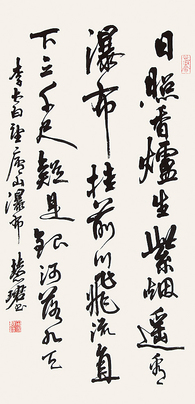 日照香爐生紫烟遥看
瀑布挂前川飛流直
下三千尺疑是銀河落九天
李太白望廬山瀑布